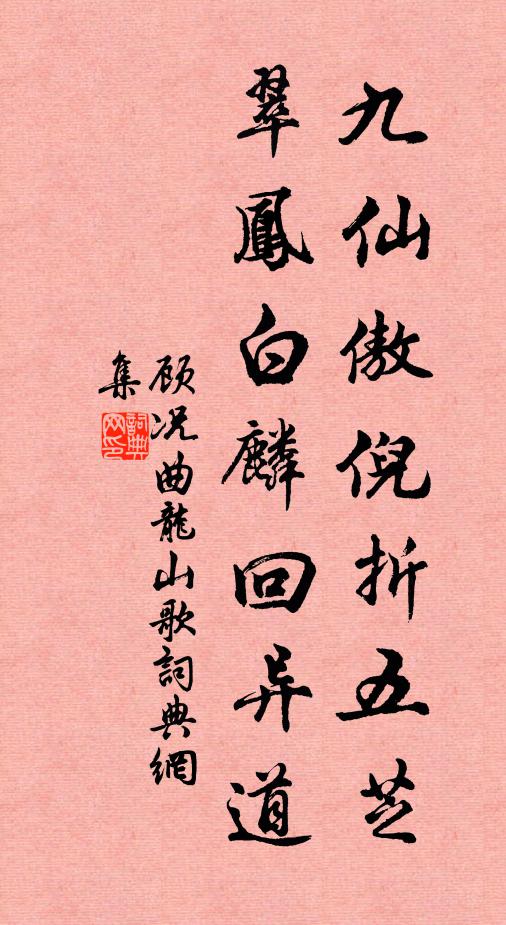 九仙傲倪折五芝
翠鳳白麟回异道
顾况曲龍山歌詞典網
集
詞典
网印